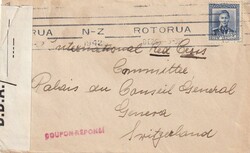 RUA N-Z ROTORUA
International Red Cross
Committee
Palais du Conseil General
Geneva
Switzerland
COUPON-RÉPONSE
D.D.A.